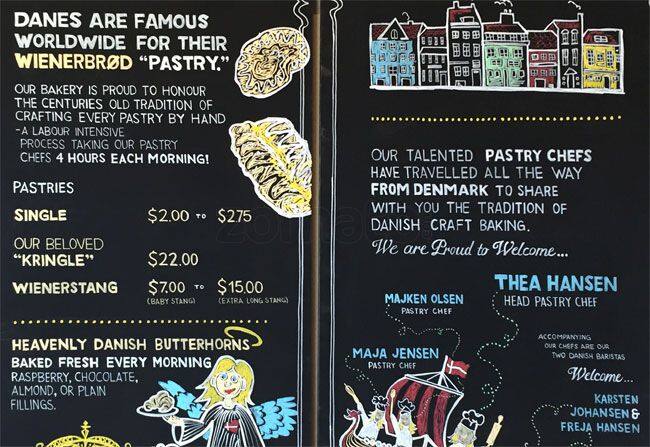 DANES ARE FAMOUS
WORLDWIDE FOR THEIR
WIENERBRØD "PASTRY."
OUR BAKERY IS PROUD TO HONOUR
THE CENTURIES OLD TRADITION OF
CRAFTING EVERY PASTRY BY HAND
-A LABOUR INTENSIVE
PROCESS TAKING OUR PASTRY
CHEFS 4 HOURS EACH MORNING!
PASTRIES
SINGLE $2.00 TO $2.75
OUR BELOVED
"KRINGLE" $22.00
WIENERSTANG $7.00 TO $15.00
(BABY STANG) (EXTRA LONG STANG)
HEAVENLY DANISH BUTTERHORNS
BAKED FRESH EVERY MORNING
RASPBERRY, CHOCOLATE,
ALMOND, OR PLAIN
FILLINGS.
OUR TALENTED PASTRY CHEFS
HAVE TRAVELLED ALL THE WAY
FROM DENMARK TO SHARE
WITH YOU THE TRADITION OF
DANISH CRAFT BAKING.
We are Proud to Welcome...
THEA HANSEN
HEAD PASTRY CHEF
MAJKEN OLSEN
PASTRY CHEF
MAJA JENSEN
PASTRY CHEF
ACCOMPANYING
OUR CHEFS ARE OUR
TWO DANISH BARISTAS
Welcome...
KARSTEN
JOHANSEN &
FREJA HANSEN